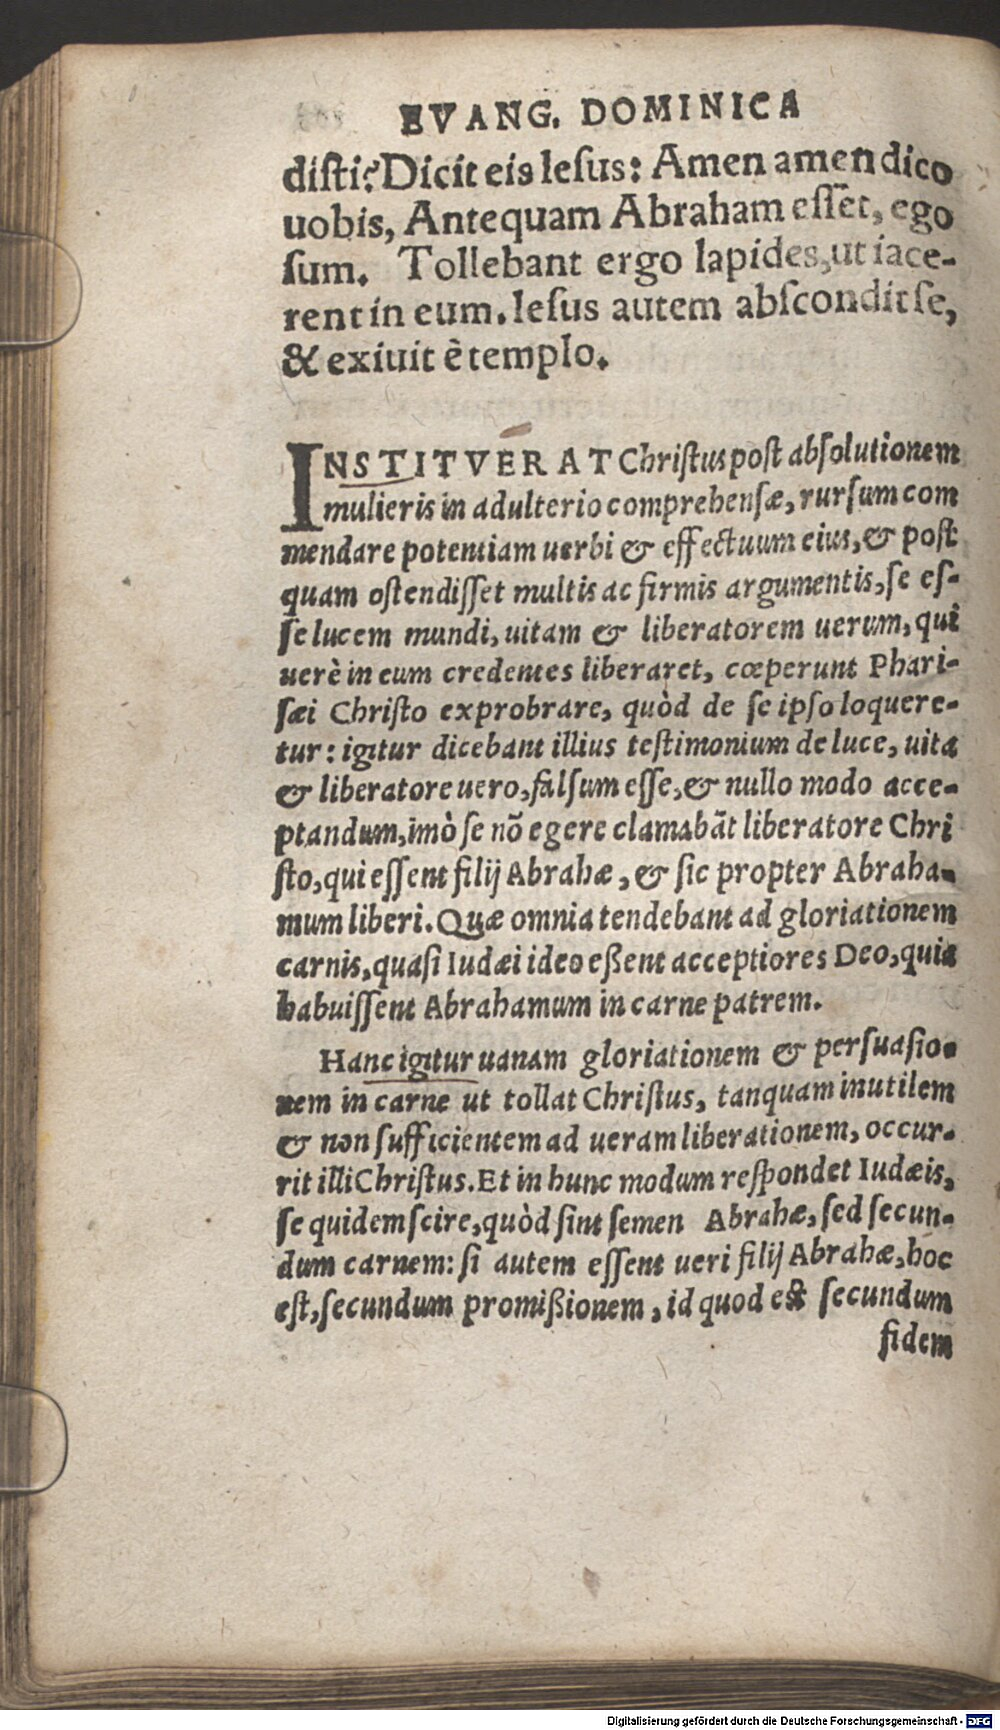 EVANG. DOMINICA
disti? Dicit eis Iesus: Amen amen dico
uobis, Antequam Abraham esset, ego
sum. Tollebant ergo lapides, ut iace-
rent in eum. Iesus autem abscondit se,
& exiuit è templo.
INSTITVERAT Christus post absolutionem
mulieris in adulterio comprehensæ, rursum com
mendare potentiam uerbi & effectuum eius, & post
quam ostendisset multis ac firmis argumentis, se es-
se lucem mundi, uitam & liberatorem uerum, qui
uerè in eum credentes liberaret, cœperunt Phari-
sæi Christo exprobrare, quòd de se ipso loquere-
tur: igitur dicebant illius testimonium de luce, uita
& liberatore uero, falsum esse, & nullo modo acce-
ptandum, imò se nõ egere clamabãt liberatore Chri
sto, qui essent filij Abrahæ, & sic propter Abraha-
mum liberi. Quæ omnia tendebant ad gloriationem
carnis, quasi Iudæi ideo eßent acceptiores Deo, quia
habuissent Abrahamum in carne patrem.
Hanc igitur uanam gloriationem & persuasio-
nem in carne ut tollat Christus, tanquam inutilem
& non sufficientem ad ueram liberationem, occur-
rit illi Christus. Et in hunc modum respondet Iudæis,
se quidem scire, quòd sint semen Abrahæ, sed secun-
dum carnem: si autem essent ueri filij Abrahæ, hoc
est, secundum promißionem, id quod est secundum
fidem
Digitalisierung gefördert durch die Deutsche Forschungsgemeinschaft - DFG